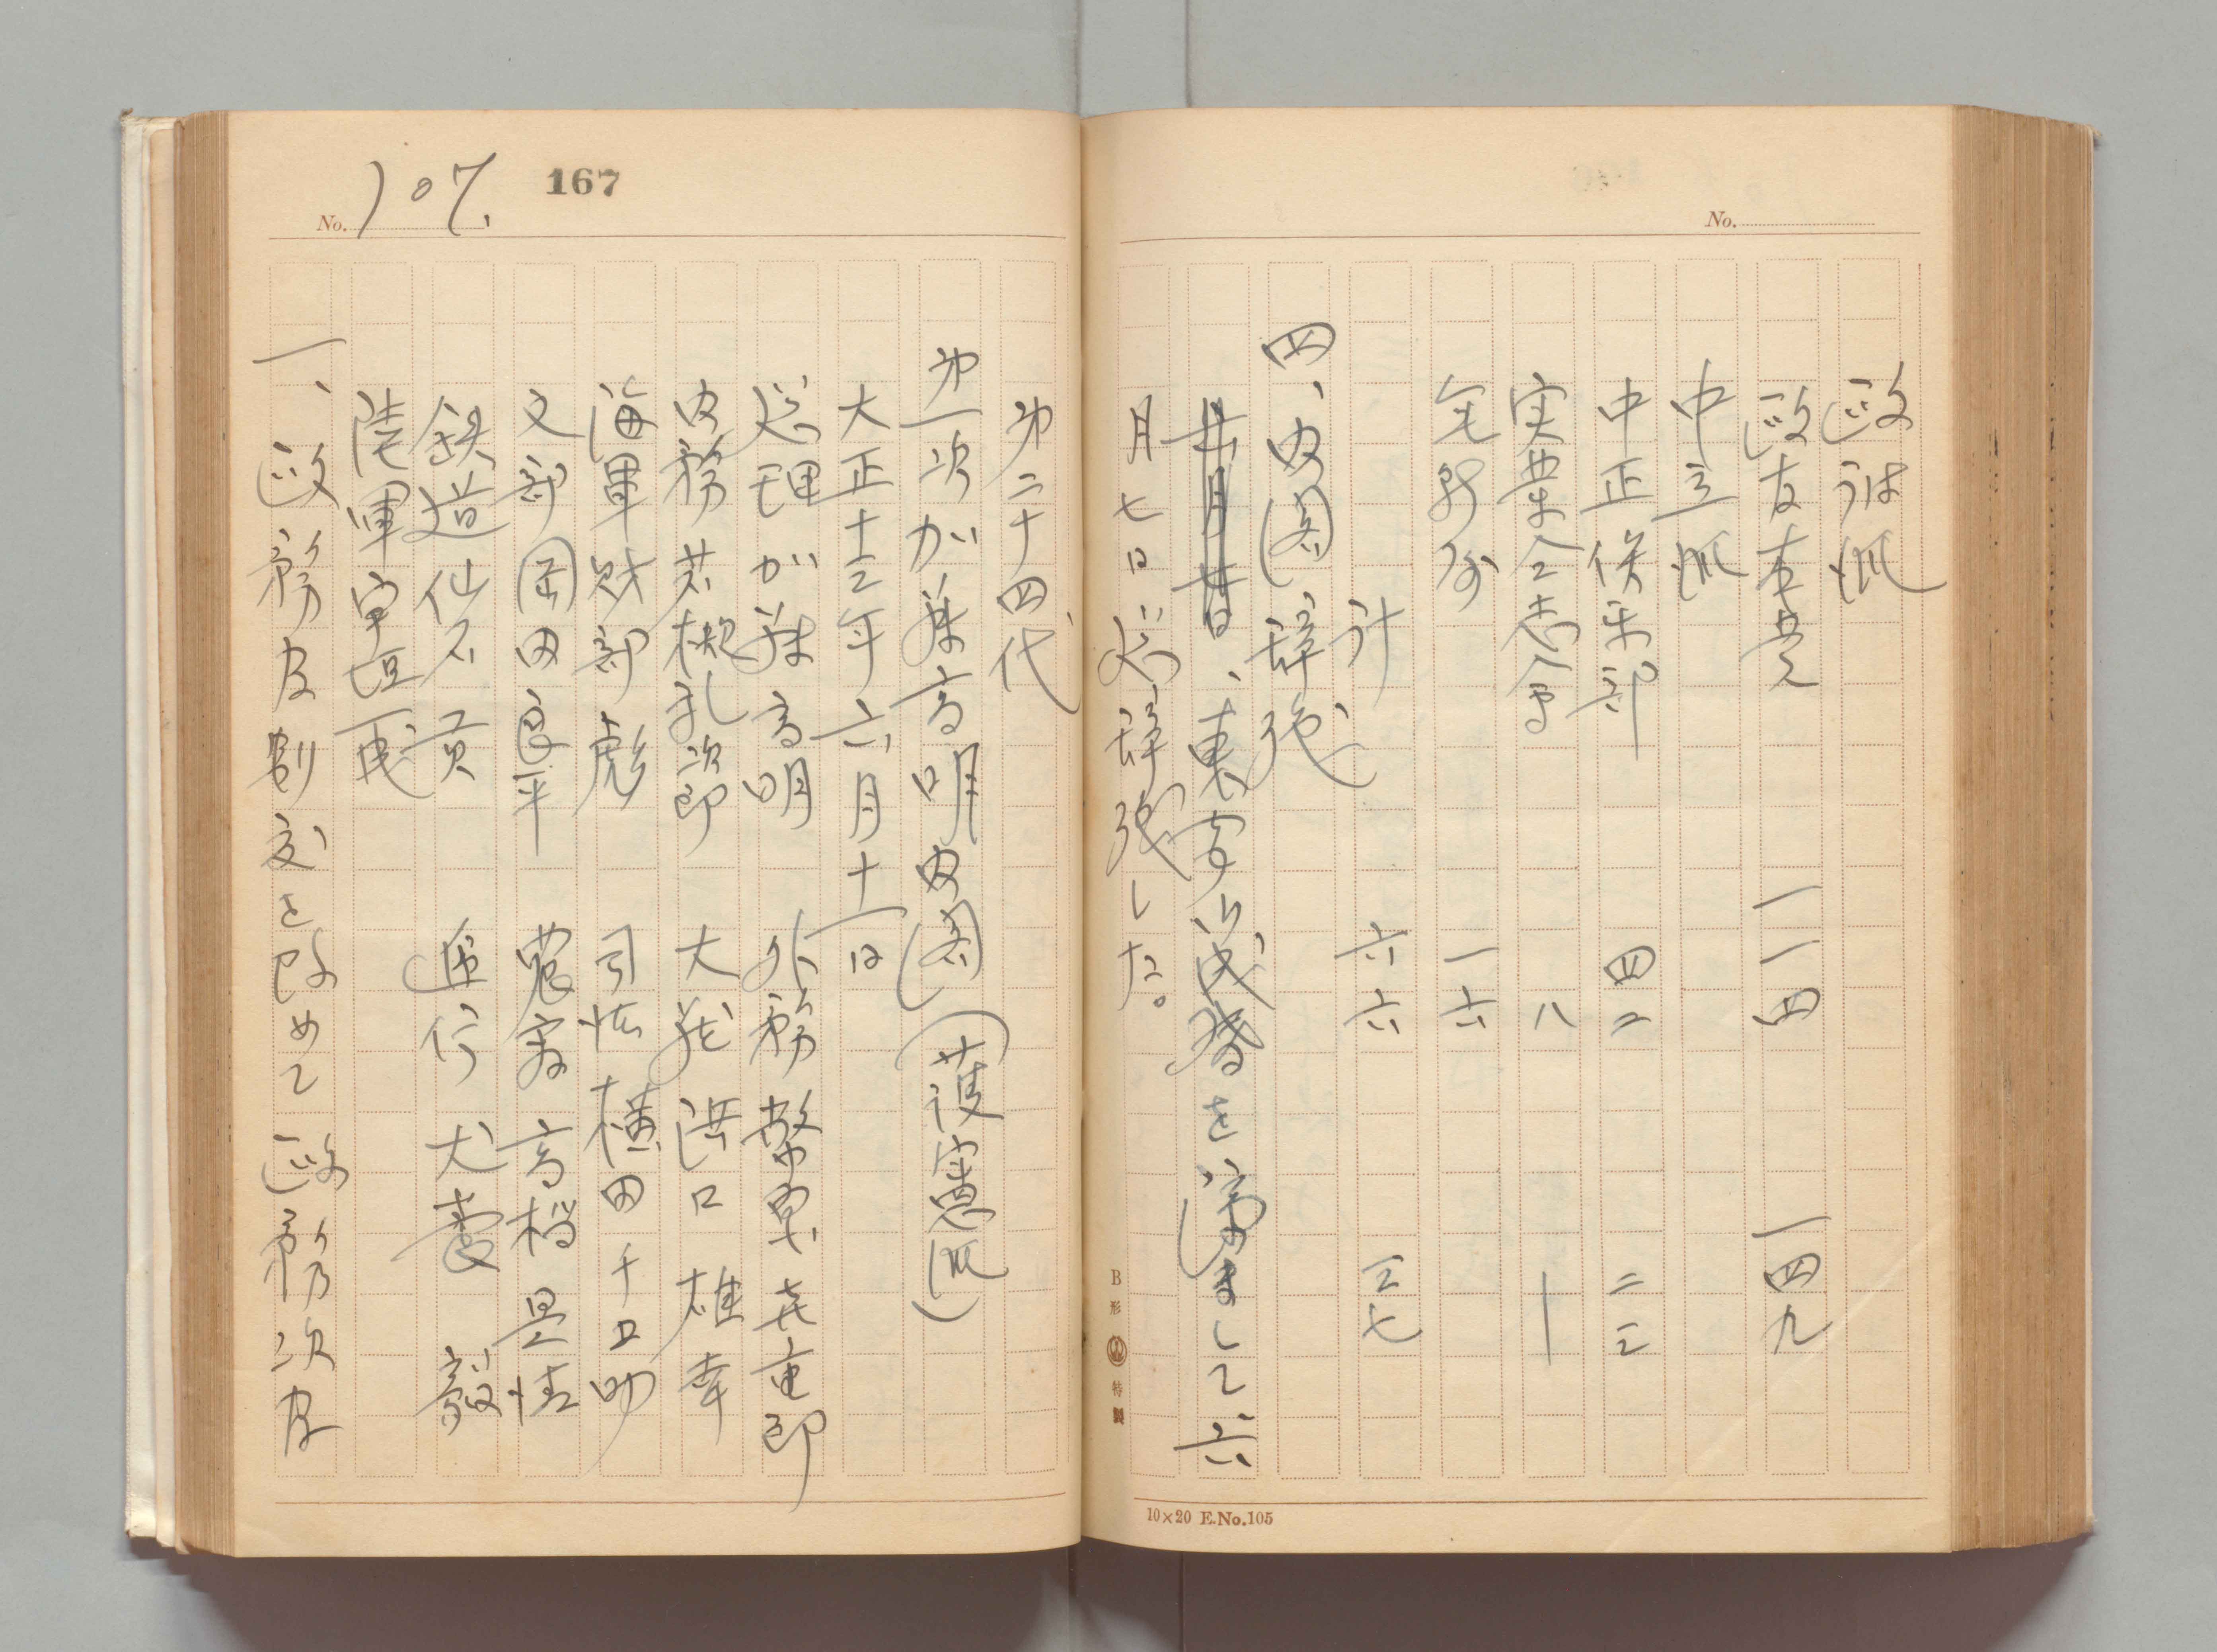 No.
政 派
政友本党 一一四 一四九
中立派
中正倶楽部 四二 二三
実業仝志会 八 ―
一六
計 六六 三七
四、内閣辞職
東宮御成婚を済まして六
月七日総辞職した。
B形 特製
10×20 E.No.105
167
No. 107.
第二十四代
第一次加藤高明内閣(護憲派)
大正十三年六月十一日
総理 加藤高明 外務 幣原喜重郎
内務 若槻礼次郎 大蔵 浜口雄幸
海軍 財部彪 司法 横田千之助
文部 岡田良平 農商 高橋是清
鉄道 仙石貢 逓信 犬養毅
陸軍 宇垣一成
一、政務官制度を改めて政務次官